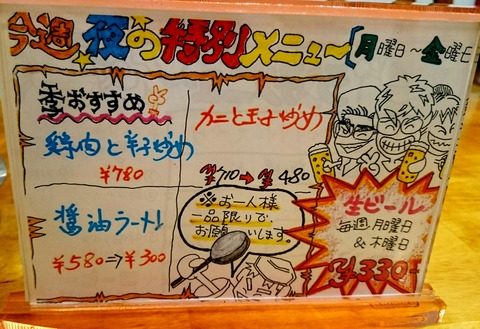 今週夜の特別メニュー[月曜日～金曜日
おすすめ
カニと玉子炒め
¥710→¥480
¥780
醤油ラーメン
¥580→¥300
※お一人様
一品限りで、
お願いします。
生ビール
毎週月曜日
&木曜日
¥330-